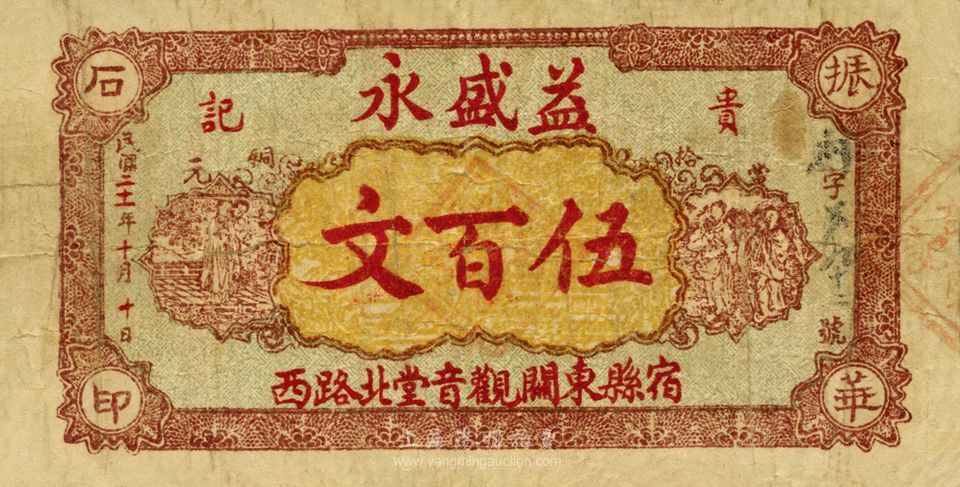 益盛永
貴記
伍百文
當拾銅元
宿縣東關觀音堂北路西
民國二十一年十月十日
字
號
振華石印
www.yangmingauction.com